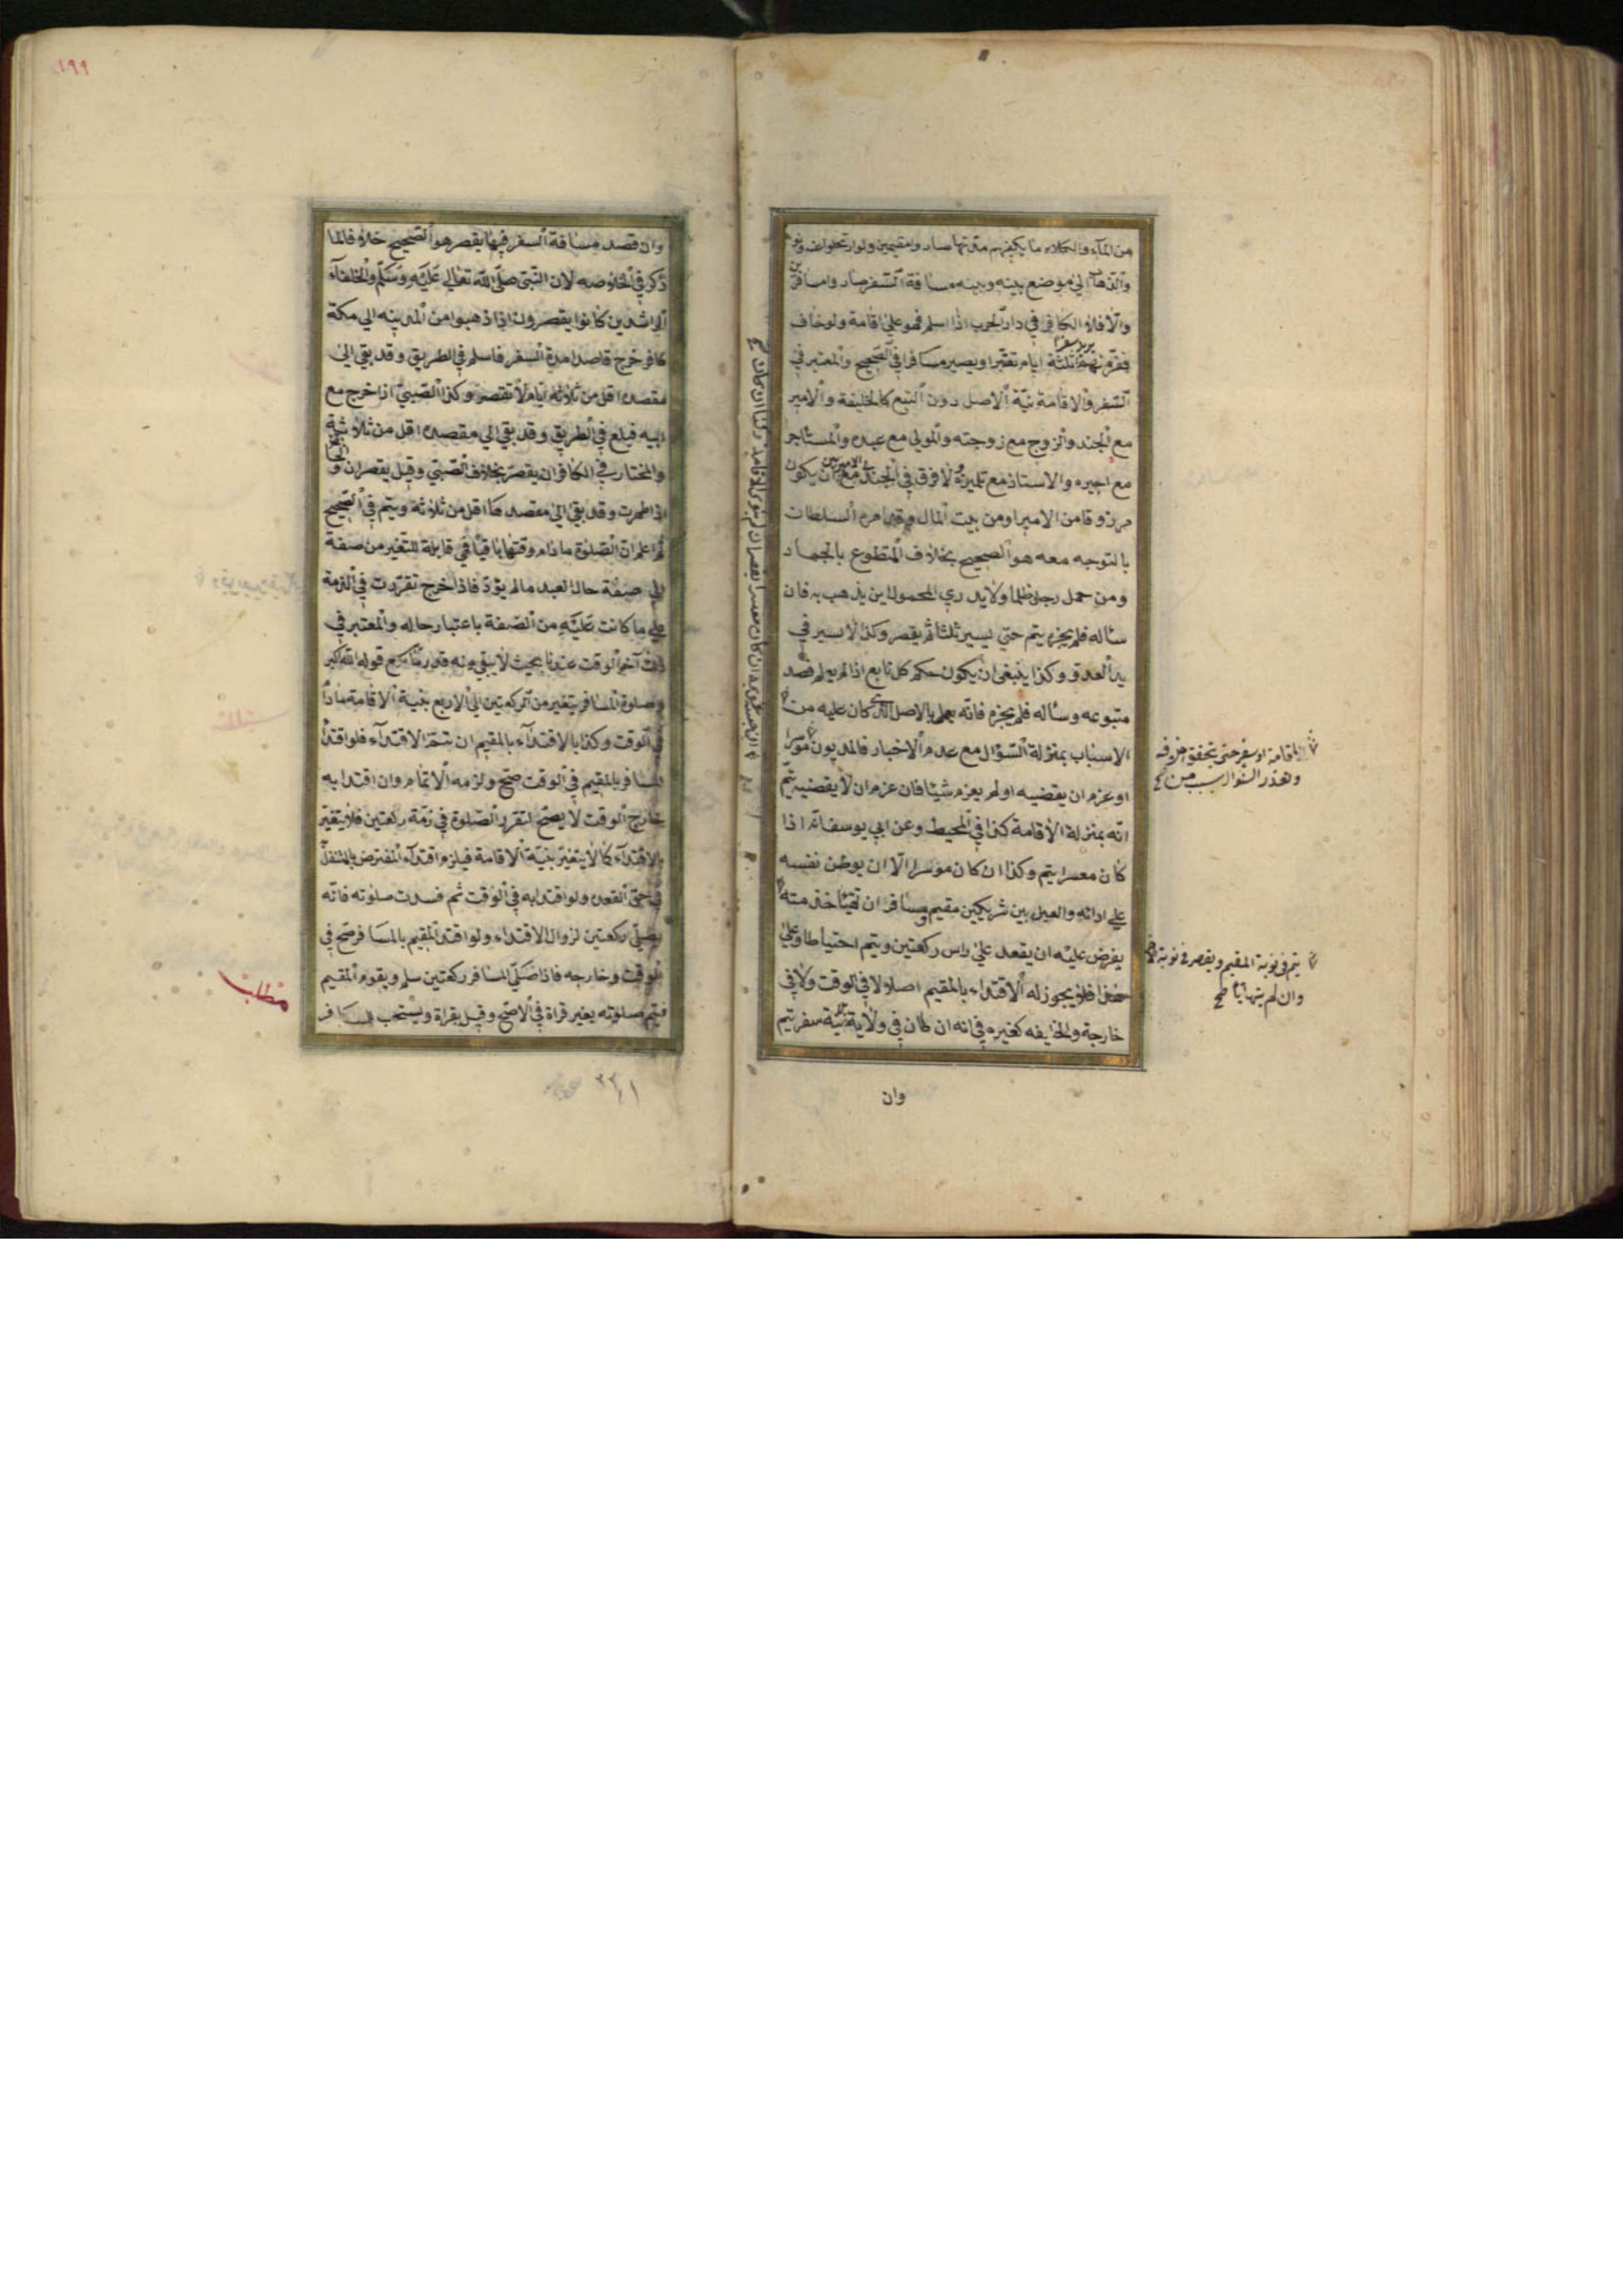 من المآء والكلاء ما يكفيهم مدّتها صاروا مقيمين ولو ارتحلوا عن
والذهاب الي موضع بينه وبينه مسافة السفر صاروا مسافرين
والّا فلا الكافر في دار الحرب اذا اسلم فهو علي اقامة ولو خاف
ففرّ منهم يريد سفر ثلثة ايام ويصير مسافرا في الصّحيح والمعتبر في
السّفر والاقامة نيّة الاصل دون التبع كالخليفة والامير
مع الجند والزوج مع زوجته والمولي مع عبده والمستاجر
مع اجيره والاستاذ مع تلميذه ولا فرق في الجندي مع الامير بين ان يكون
مرزوقا من الامير او من بيت المال وقد امره السلطان
بالتوجه معه هو الصحيح بخلاف المتطوع بالجهاد
ومن حمل رجلا ظلما ولا يدري المحمول اين يذهب به فان
سأله فلم يخبره يتم حتي يسير ثلثا ثم يقصر وكذا الاسير في
يد العدو وكذا ينبغي ان يكون حكم كل تابع اذا لم يعلم قصد
متبوعه وسأله فلم يخبره فانه يعمل بالاصل الذي كان عليه من
الاسباب بمنزلة السّؤال مع عدم الاخبار فالمديون موسرا
او عزم ان يقضيه او لم يعزم شيئا فان عزم ان لا يقضيه يتمّ
انه بمنزلة الاقامة كذا في المحيط وعن ابي يوسف انه اذا
كان معسرا يتم وكذا ان كان موسرا الّا ان يوطن نفسه
علي ادائه والعبد بين شريكين مقيم ومسافر ان تهيئا خدمته
يفرض عليه ان يقعد علي راس ركعتين ويتم احتياطا وعلي
هذا فلا يجوز له الاقتداء بالمقيم اصلا لا في الوقت ولا في
خارجه والخليفه كغيره في انه ان طاف في ولايته بنية سفر يتم
وان
اقامة او سفر حتي يتحقق خلافه
وتعذر السؤال بسبب من
يتم في نوبة المقيم ويقصر في نوبة
وان لم يتهايا صح
وان قصد مسافة السفر فيها يقصر هو الصّحيح خلاف لما
ذكر في الخلاصه لان النّبي صلّي اللّه تعالي عَلَيْه وَسَلّم والخلفآء
الراشدين كانوا يقصرون اذا ذهبوا من المدينه الي مكة
كافر خرج قاصدا مدة السفر فاسلم في الطريق وقد بقي الي
مقصده اقل من ثلاثة ايام لا يقصر وكذا الصّبي اذا خرج مع
ابيه فبلغ في الطريق وقد بقي الي مقصده اقل من ثلاثة
والمختار في الكافر ان يقصر بخلاف الصّبي وقيل يقصران والحائض
اذا طهرت وقد بقي الي مقصدها اقل من ثلاثة ويتم في الصّحيح
ثم اعلم انّ الصّلوة مادام وقتها باقيا في قابلة للتغير من صفة
الي صفة حال العبد ما لم يؤدّ فاذا خرج تقررت في الذمة
علي ما كانت عَليْه من الصّفة باعتبار حاله والمعتبر في
ذلك آخر الوقت عندنا بحيث لا يبقي منه قدر ما يسع قوله اللّه اكبر
وصلوة المسافر يتغير من الركعتين الي الاربع بنية الاقامة مادا
في الوقت وكذا بالاقتدآء بالمقيم ان يتخذ الاقتدآء فلو اقتدا
المسافر بالمقيم في الوقت صحّ ولزمه الاتمام وان اقتدا به
خارج الوقت لا يصحّ لتقرر الصّلوة في ذمّة ركعتين فلا يتغيّر
بالاقتدآء كما لا يتغيّر بنيّة الاقامة فيلزم اقتدآء المفترض بالمتنفل
في حق القعده ولو اقتدا به في الوقت ثم فسدت صلوته فانه
يصلّي ركعتين لزوال الاقتداء ولو اقتدا المقيم بالمسافر صح في
الوقت وخارجه فاذا صَلّي المسافر ركعتين سلم ويقوم المقيم
فيتم صلوته بغير قراة في الاصّح وقيل بقراة ويستحب للمسافر
مطلب
١٩٩